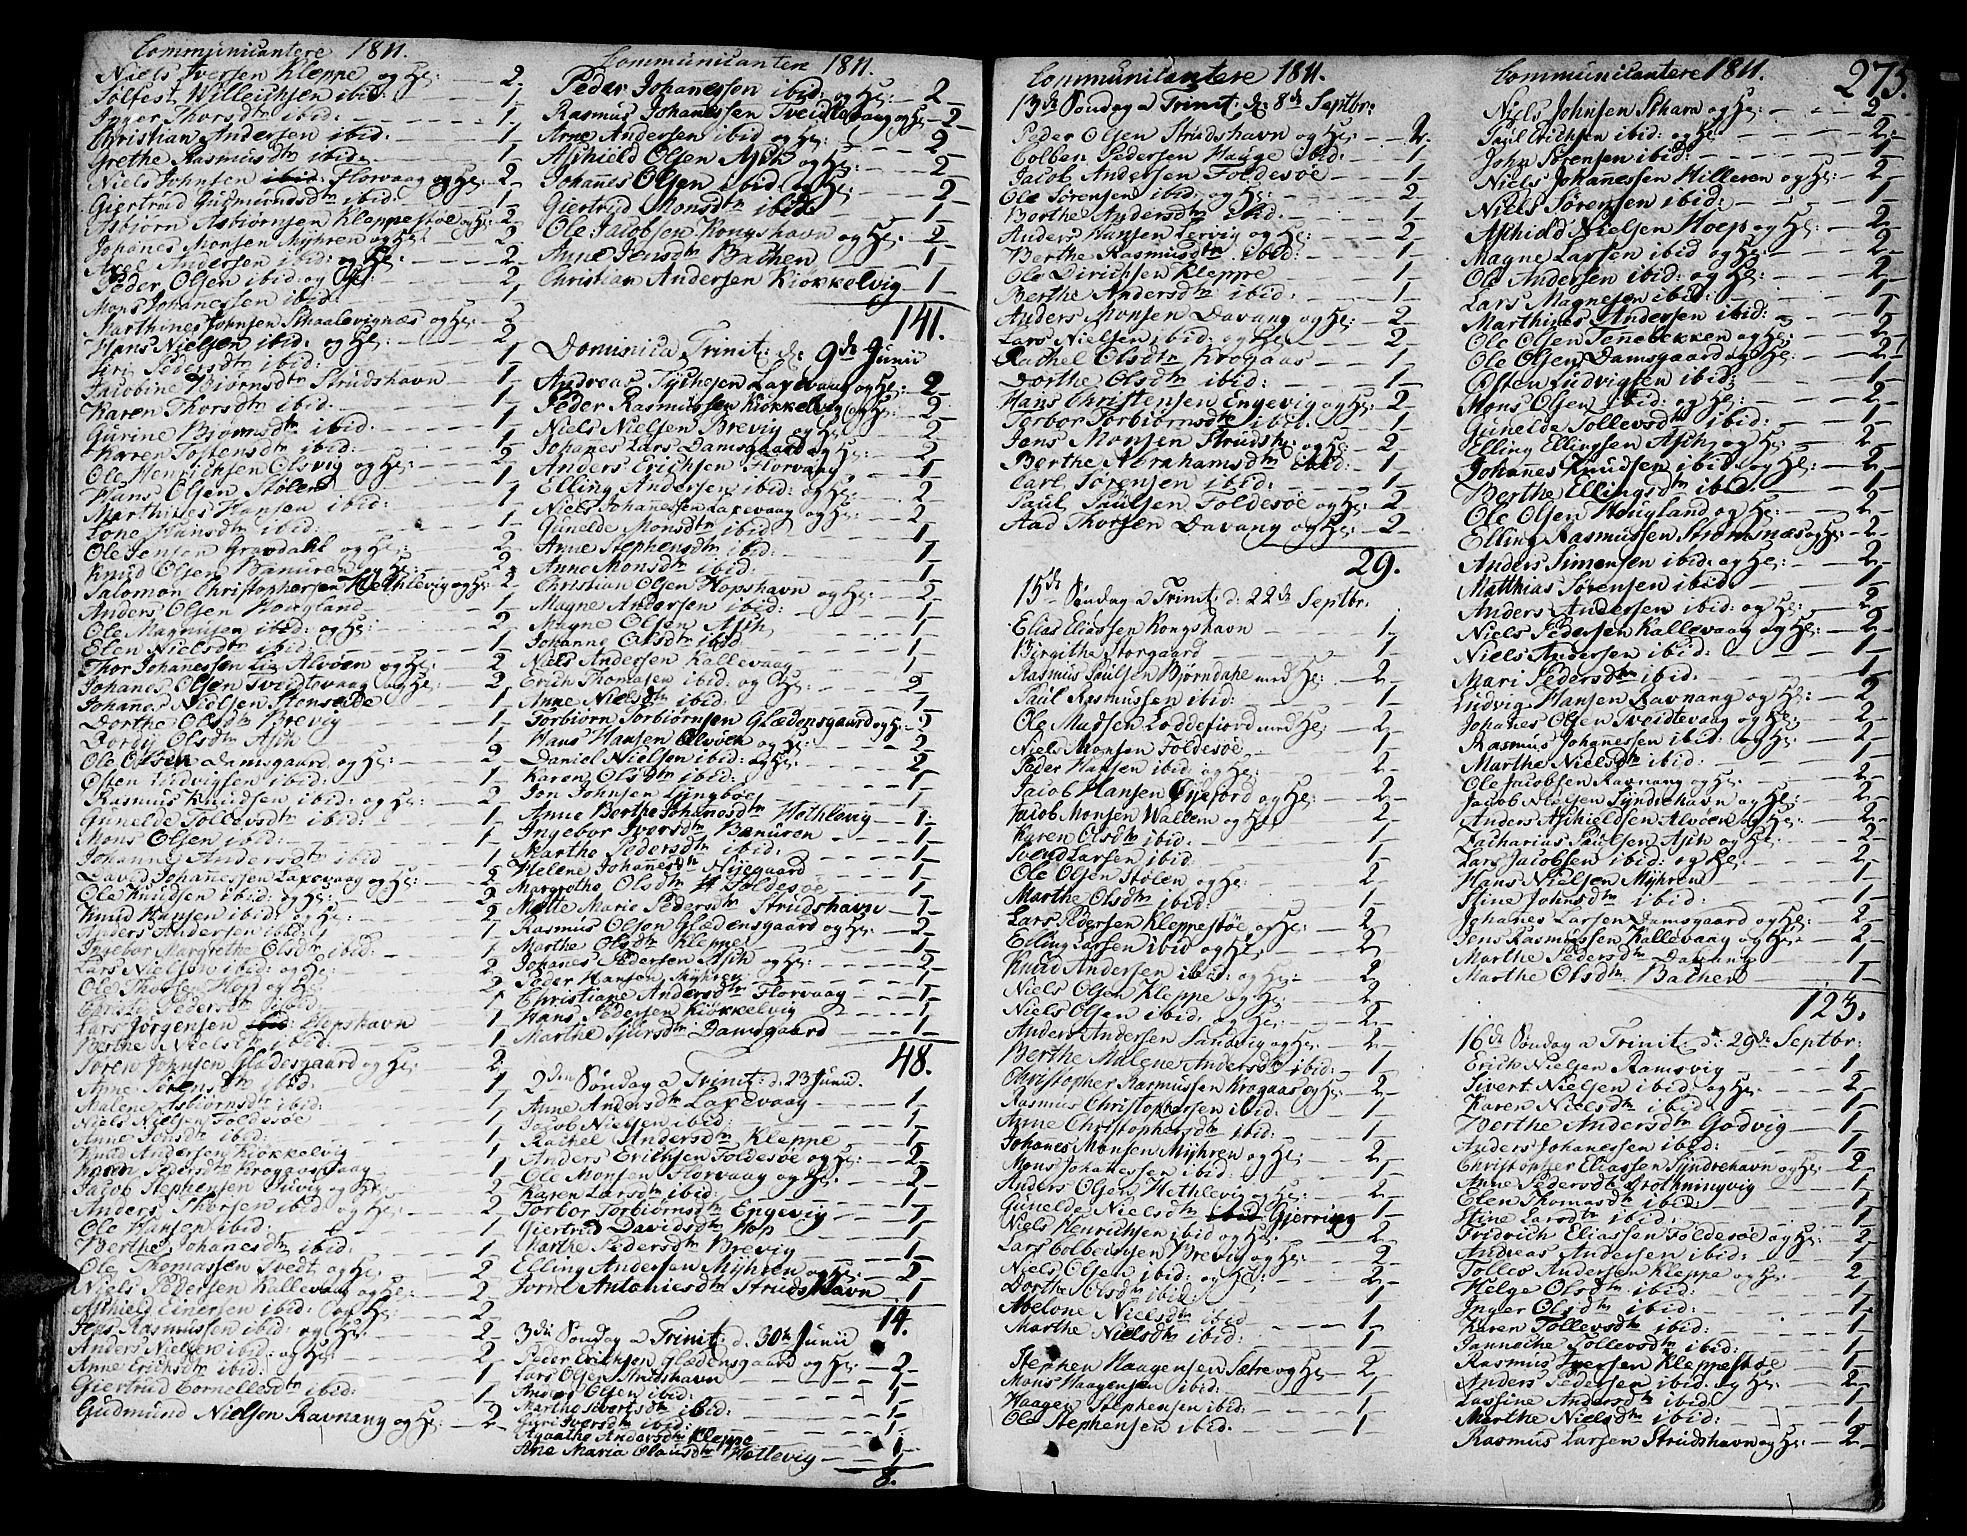 Communicantere 1811.
Niels Iversen Kleppe og He: 2
Sølfest Willeichsen ibid: 1
Inger Thorsdtr ibid: 1
Christian Andersen ibid: 1
Grethe Rasmusdtr ibid: 1
Niels Johnsen Florvaag og He: 2
Giertrud Gudmundsdtr ibid: 1
Asbiørn Asbiørnsen Kleppestøe og He: 2
Johanes Monsen Myhren og He: 2
Axel Andersen ibid: og He: 2
Peder Olsen ibid: og He: 2
Mons Johanessen ibid: 1
Marthines Johnsen Skaalevignæs og He: 2
Hans Nielsen ibid: og He: 2
Siri Pedersdtr ibid: 1
Jacobine Biørnsdtr Strudshavn 1
Karen Thorsdtr ibid: 1
Gurine Biørnsdtr ibid: 1
Karen Tostensdtr ibid: 1
Ole Henrichsen Olsvig og He: 2
Hans Olsen Stølen 1
Marthines Hansen ibid: 1
Lone Hansdtr ibid: 1
Ole Jensen Gravdahl og He: 2
Knud Olsen Banuren og He: 2
Salomon Christophersen Hethlevig og He: 2
Anders Olsen Hougland 1
Ole Magnusen ibid: og He: 2
Elen Nielsdtr ibid: 1
Thor Johanessen Alvøen og He: 2
Johanes Olsen Tveitevaag og He: 2
Johanes Nielsen Stenseide 1
Dorthe Olsdtr Brevig 1
Dordy Olsdtr Ask 1
Ole Olsen Damsgaard og He: 2
Østen Ludvigsen ibid: 1
Rasmus Knudsen ibid: og He: 2
Gunelde Tollevsdtr ibid: 1
Mons Olsen ibid: 1
Johanna Andersdtr ibid 1
David Johanessen Laxevaag og He: 2
Ole Knudsen ibid: og He: 2
Knud Hansen ibid: og He: 2
Anders Andersen ibid: 1
Ingebor Margrethe Olsdtr ibid: 1
Lars Nielsen ibid: og He: 2
Ole Thorsen Hop og He: 2
Christi Pedersdtr ibid: 1
Lars Jørgensen Hopshavn 1
Berthe Nielsdtr ibid: 1
Søren Johnsen Glædesgaard og He: 2
Anne Sørensdtr ibid: 1
Malene Asbiørnsdtr ibid: 1
Niels Nielsen Foldesøe 1
Anne Jensdtr ibid: 1
Knud Andersen Kiøkkelvig 1
Karen Pedersdtr Krogaasvaag 1
Jacob Stephensen og He: 2
Anders Thorsen ibid og He: 2
Ole Hansen ibid: 1
Berthe Johanesdtr ibid: 1
Ole Thomassen Tvedt og He: 2
Niels Pedersen Kallevaag og He: 2
Askield Einersen ibid: og He: 2
Jens Rasmussen ibid: og He: 2
Anders Nielsen ibid: og He: 2
Anne Erichsdtr ibid: 1
Giertrud Cornellesdtr ibid: 1
Gudmund Nielsen Ravnang og He: 2
Communicantere 1811.
Peder Johanessen ibid: og He: 2
Rasmus Johanessen Tveidtevaag og He: 2
Arne Andersen ibid og He: 2
Askield Olsen Ask og He: 2
Johanes Olsen ibid: og He: 2
Giertrud Monsdtr ibid: 1
Ole Jacobsen Kongshavn og He: 2
Anne Jensdtr Bakken 1
Christian Andersen Kiøkkelvig 1
141.
Dominica Trinit: d: 9de Junii
Andreas Tychesen Laxevaag og He: 2
Peder Rasmussen Kiøkkelvig og He: 2
Niels Nielsen Brevig og He: 2
Johanes Lars Damsgaard og He: 2
Anders Erichsen Florvaag 1
Elling Andersen ibid: og He: 2
Niels Johanessen Laxevaag og He: 2
Gunelde Monsdtr ibid: 1
Anne Stephensdtr ibid: 1
Anne Monsdtr ibid: 1
Christian Olsen Hopshavn og He: 2
Magne Andersen ibid: 1
Magne Olsen Ask 1
Johanne Olsdtr ibid 1
Niels Andersen Kallevaag 1
Erich Thomasen ibid: og He: 2
Anne Nielsdtr ibid: 1
Torbiørn Torbiørnsen Glædensgaard og He: 2
Hans Hansen Alvøen og He: 2
Daniel Nielsen ibid: og He: 2
Karen Olsdtr ibid: 1
Jon Johnsen Liungbøe 1
Anne Berthe Johanesdtr Hethlevig 1
Ingebor Iversdtr Banuren 1
Marthe Pedersdtr ibid: 1
Helene Johanesdtr Nygaard 1
Margrethe Olsdtr Foldesøe 1
Mette Marie Pedersdtr Strudshavn 1
Rasmus Olsen Glædensgaard og He: 2
Marthe Olsdtr Kleppe 1
Johanes Pedersen Ask og He: 2
Peder Hansen Myhren 1
Christiane Andersdtr Florvaag 1
Hans Pedersen Kiøkkelvig 1
Marthe Siversdtr Damsgaard 1
48.
2den Søndag a Trinit: d. 23 Junii.
Anne Andersdtr Laxevaag 1
Jacob Nielsen ibid: 1
Rachel Andersdtr Kleppe 1
Anders Erichsen Foldesøe og He: 2
Ole Monsen Florvaag og He: 2
Karen Larsdtr ibid: 1
Torbor Torbiørnsdtr Engevig 1
Giertrud Davidsdtr Hop 1
Marthe Pedersdtr Brevig 1
Elling Andersen Myhren og He: 2
Jorne Antoniesdtr Strudshavn 1
14.
3die Søndag a Trinit: d. 30te Junii
Peder Erichsen Glædensgaard og He: 2
Lars Olsen Strudshavn 1
Anders Olsen ibid: 1
Marthe Sivertsdtr ibid: 1
Guri Iversdtr ibid: 1
Agaathe Andersdtr Kleppe 1
Ane Maria Olausdtr Hetlevig 1
8.
Communicantere 1811.
13de Søndag a Trinit: d: 8de Septbr:
Peder Olsen Strudshavn og He: 2
Colben Pedersen Hauge ibid: 1
Jacob Andersen Foldesøe 1
Ole Sørensen ibid: og He: 2
Berthe Andersdtr ibid: 1
Anders Hansen Lervig og He: 2
Berthe Rasmusdtr ibid: 1
Ole Dirichsen Kleppe 1
Berthe Andersdtr ibid: 1
Anders Monsen Davang og He: 2
Lars Nielsen ibid: og He: 2
Rachel Olsdtr Krogaas 1
Dorthe Olsdtr ibid: 1
Hans Christensen Engevig og He: 2
Torbor Torbiørnsdtr ibid: 1
Jens Monsen Strudsh: og He: 2
Berthe Abrahamsdtr ibid: 1
Carl Sørensen ibid: 1
Paul Paulsen Foldesøe og He: 2
Aad Thorsen Davang og He: 2
29.
15de Søndag a Trinit: d: 22de Septbr:
Elias Eliassen Kongshavn 1
Birgithe Storgaard 1
Rasmus Paulsen Biørndahl med He: 2
Paul Rasmussen ibid: 1
Ole Madsen Loddefiord med He: 2
Niels Monsen Foldesøe 1
Peder Hansen ibid: og He: 2
Jacob Hansen Øvefiord og He: 2
Jacob Monsen Walben og He: 2
Karen Olsdtr ibid: 1
Svend Larsen ibid: 1
Ole Olsen Stølen og He: 2
Marthe Olsdtr ibid: 1
Lars Pedersen Kleppestøe og He: 2
Elling Larsen ibid og He: 2
Knud Andersen ibid: og He: 2
Niels Olsen Kleppe og He: 2
Niels Olsen ibid: og He: 2
Anders Andersen Landvig og He: 2
Berthe Malene Andersdtr ibid: 1
Christopher Rasmussen Krogaas og He: 2
Rasmus Christophersen ibid: 1
Anne Christophersdtr ibid: 1
Johanes Monsen Myhren og He: 2
Mons Johanessen ibid: 1
Anders Olsen Hethlevig og He: 2
Gunelde Nielsdtr Gierring 1
Niels Henrichsen ibid og He: 2
Lars Colbeinsen Brevig og He: 2
Niels Olsen ibid: og He: 2
Dorthe Olsdtr ibid: 1
Abelone Nielsdtr ibid 1
Marthe Nielsdtr ibid: 1
Stephen Haagensen Sætre og He: 2
Mons Haagensen ibid: 1
Haagen Stephensen ibid: 1
Ole Stephensen ibid: 1
Communicantere 1811.
275.
Niels Johnsen Skare og He: 2
Paul Erichsen ibid: og He 2
John Sørensen ibid: 1
Niels Johanessen Hilleren og He: 2
Niels Sørensen ibid: 1
Askield Nielsen Hoep og He: 2
Magne Larsen ibid og He: 2
Ole Andersen ibid: og He: 2
Lars Magnesen ibid: 1
Marthines Andersen ibid: 1
Ole Olsen Tenebekken og He: 2
Ole Olsen Damsgaard og He: 2
Østen Ludvigsen ibid: 1
Mons Olsen ibid: og He: 2
Gunelde Tollevsdtr ibid: 1
Elling Ellingsen Ask og He: 2
Johanes Knudsen ibid: og He: 2
Berthe Ellingsdtr ibid: 1
Ole Olsen Hougland og He: 2
Elling Rasmussen Strømsnæs og He: 2
Anders Simensen ibid: og He: 2
Matthias Sørensen ibid 1
Anders Andersen ibid: og He: 2
Niels Pedersen Kallevaag og He: 2
Niels Andersen ibid: 1
Mari Pedersdtr ibid: 1
Ludvig Hansen Ravnang og He: 2
Johanes Olsen Tveidtevaag og He: 2
Rasmus Johanessen ibid: 1
Marthe Nielsdtr ibid: 1
Ole Jacobsen Ravnang og He: 2
Jacob Nielsen Syndrehavn og He: 2
Anders Askieldsen Alvøen og He: 2
Zacharias Paulsen Ask og He: 2
Lars Jacobsen ibid: og He: 2
Hans Nielsen Myhren 1
Stine Johnsdtr ibid: 1
Johanes Larsen Damsgaard og He: 2
Jens Rasmussen Kallevaag og He: 2
Marthe Pedersdtr Davang 1
Marthe Olsdtr Bakken 1
123.
16de Søndag a Trinit: d: 29de Septbr:
Erich Nielsen Ramsvig 1
Sivert Nielsen ibid: og He: 2
Karen Nielsdtr ibid: 1
Berthe Andersdtr Godvig 1
Anders Johanessen ibid: 1
Christopher Eliassen Syndrehavn og He: 2
Anne Pedersdtr Drothningvig 1
Elen Thomasdtr ibid: 1
Stine Larsdtr ibid: 1
Fridrich Eliassen Foldesøe og He: 2
Andreas Andersen ibid: 1
Tolles Andersen Kleppe og He: 2
Helge Olsdtr ibid: 1
Inger Olsdtr ibid: 1
Karen Tollevsdtr ibid: 1
Janneche Tollevsdtr ibid: 1
Rasmus Iversen Kleppestøe 1
Anders Pedersen ibid: og He: 2
Larsine Andersdtr ibid: 1
Marthe Nielsdtr ibid: 1
Rasmus Larsen Strudshavn og He: 2